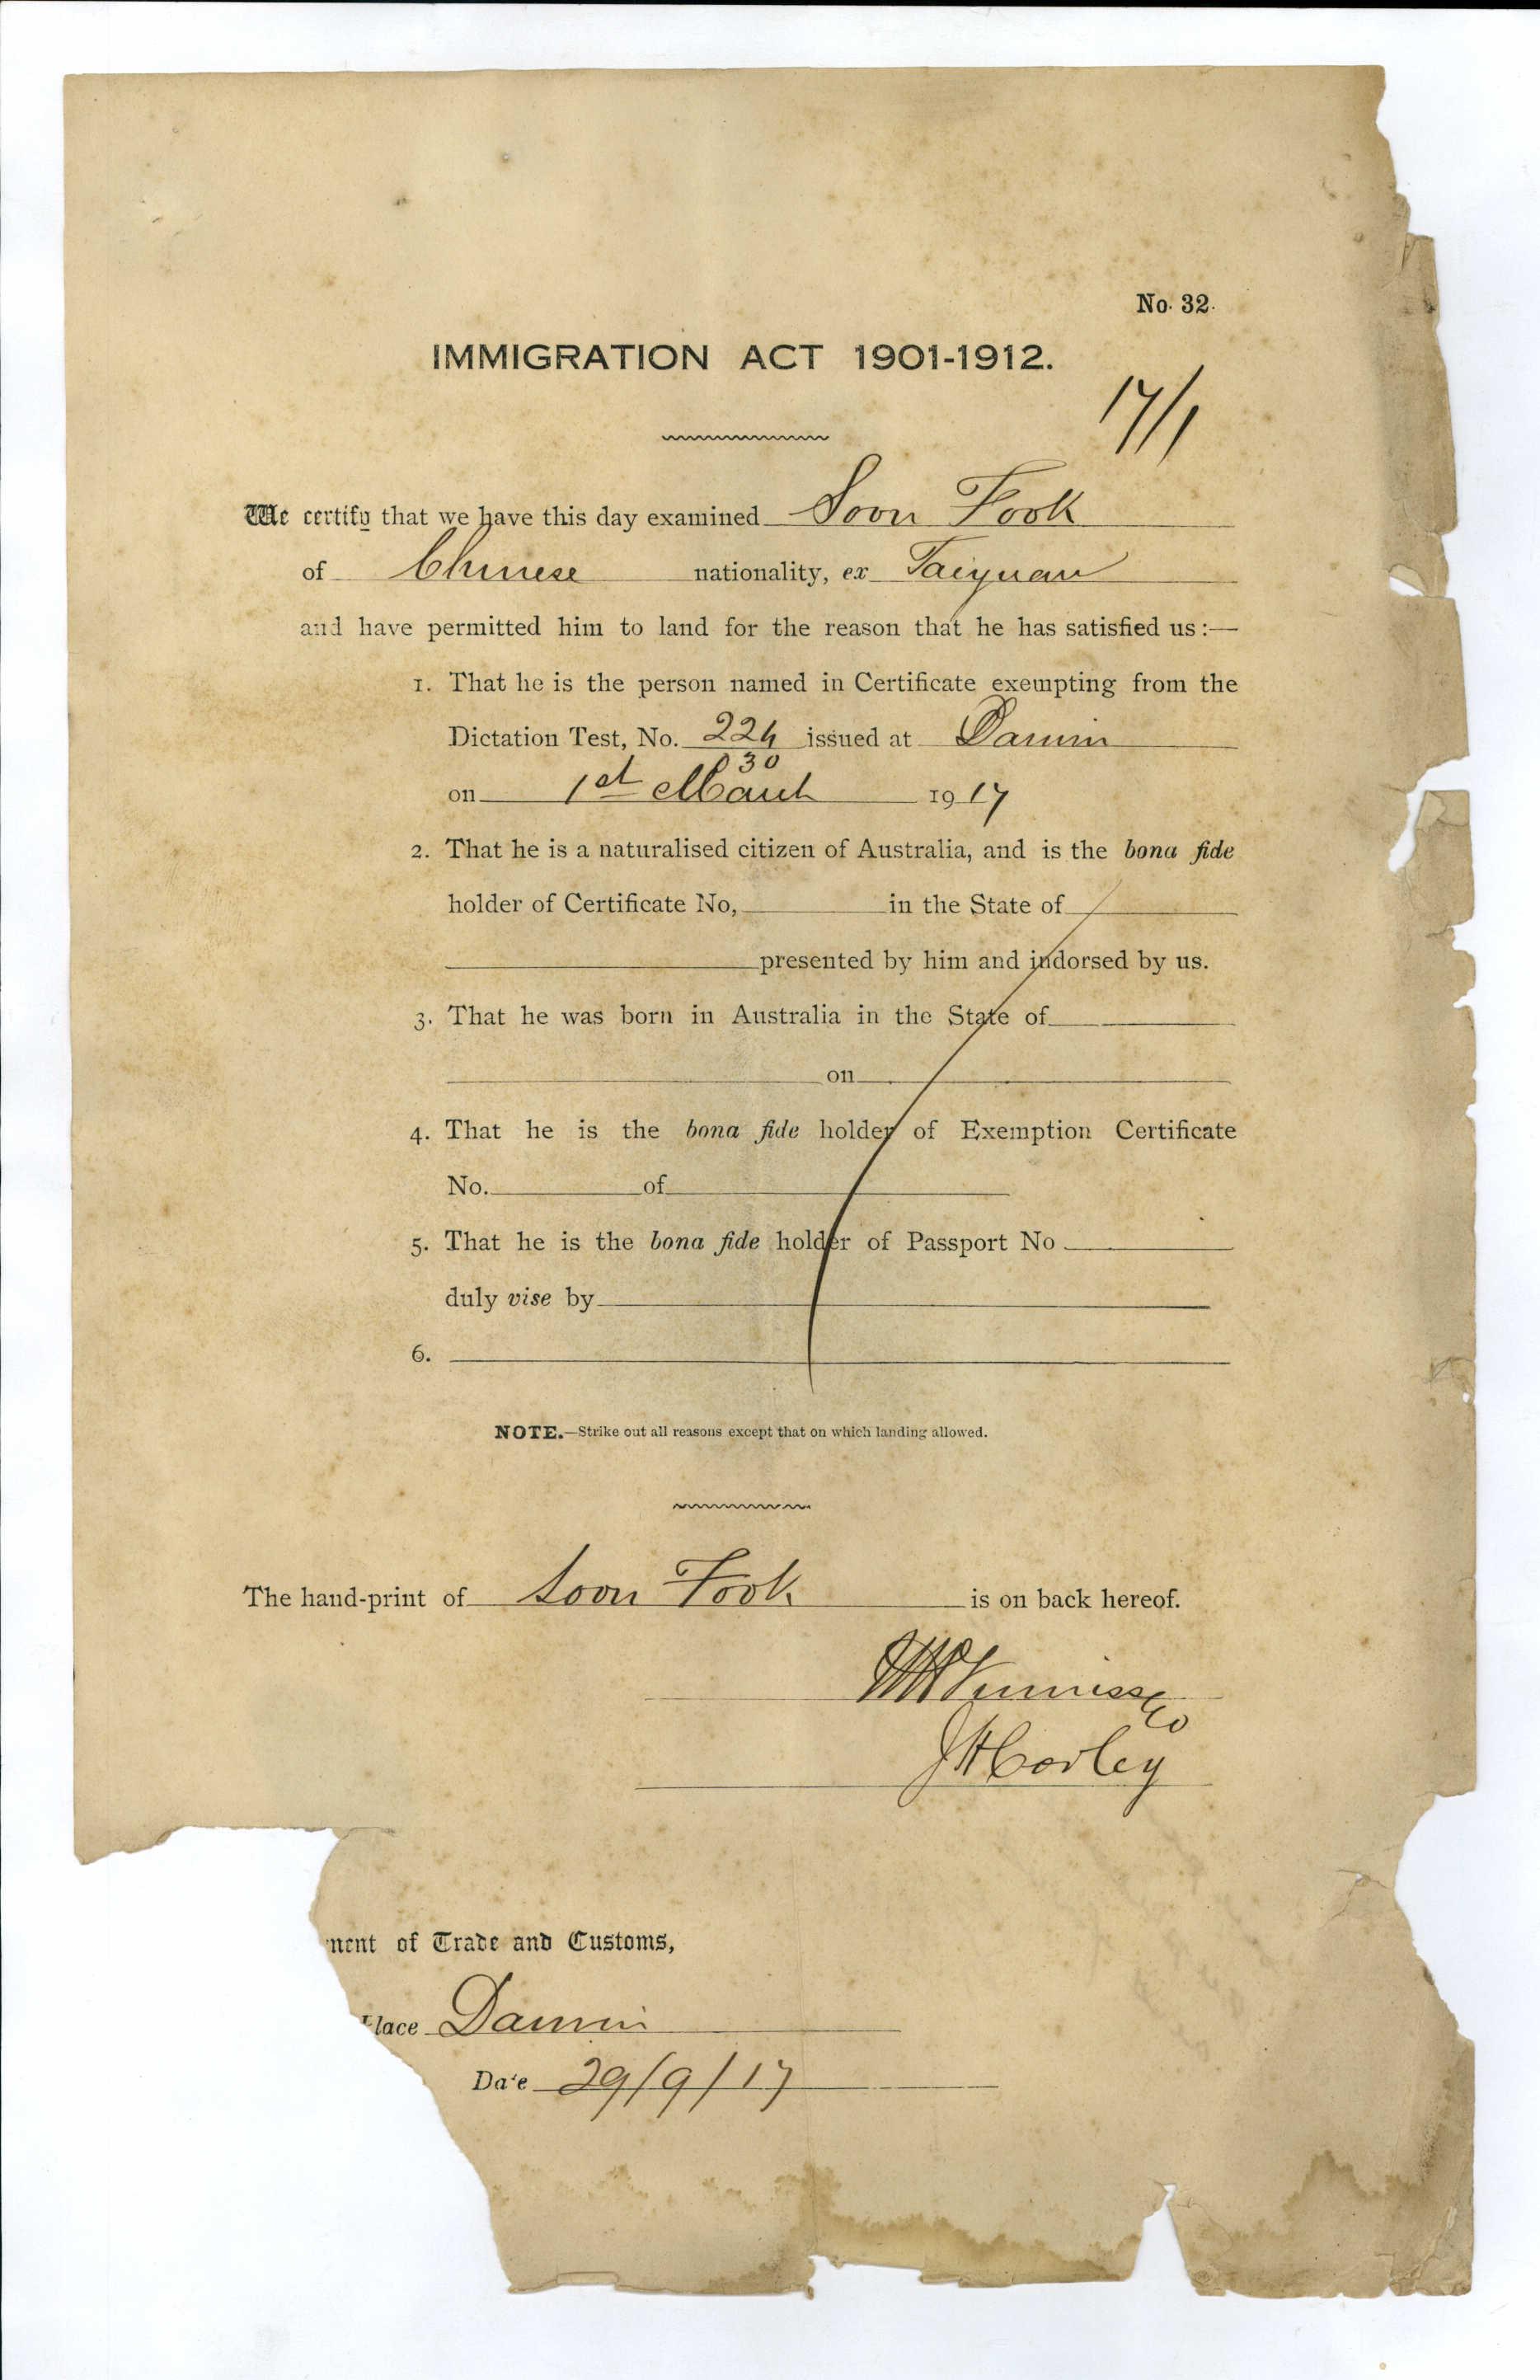 No. 32.
IMMIGRATION ACT 1901-1912.
17/1
We certify that we have this day examined Soon Fook
of Chinese nationality, ex Taiyuan
and have permitted him to land for the reason that he has satisfied us :—
1. That he is the person named in Certificate exempting from the
Dictation Test, No. 224/30 issued at Darwin
on 1st March 1917
2. That he is a naturalised citizen of Australia, and is the bona fide
holder of Certificate No, in the State of
presented by him and indorsed by us.
3. That he was born in Australia in the State of
on
4. That he is the bona fide holder of Exemption Certificate
No. of
5. That he is the bona fide holder of Passport No
duly vise by
6.
NOTE.—Strike out all reasons except that on which landing allowed.
The hand-print of Soon Fook is on back hereof.
JHCorley
ment of Trade and Customs,
Place Darwin
Date 29/9/17